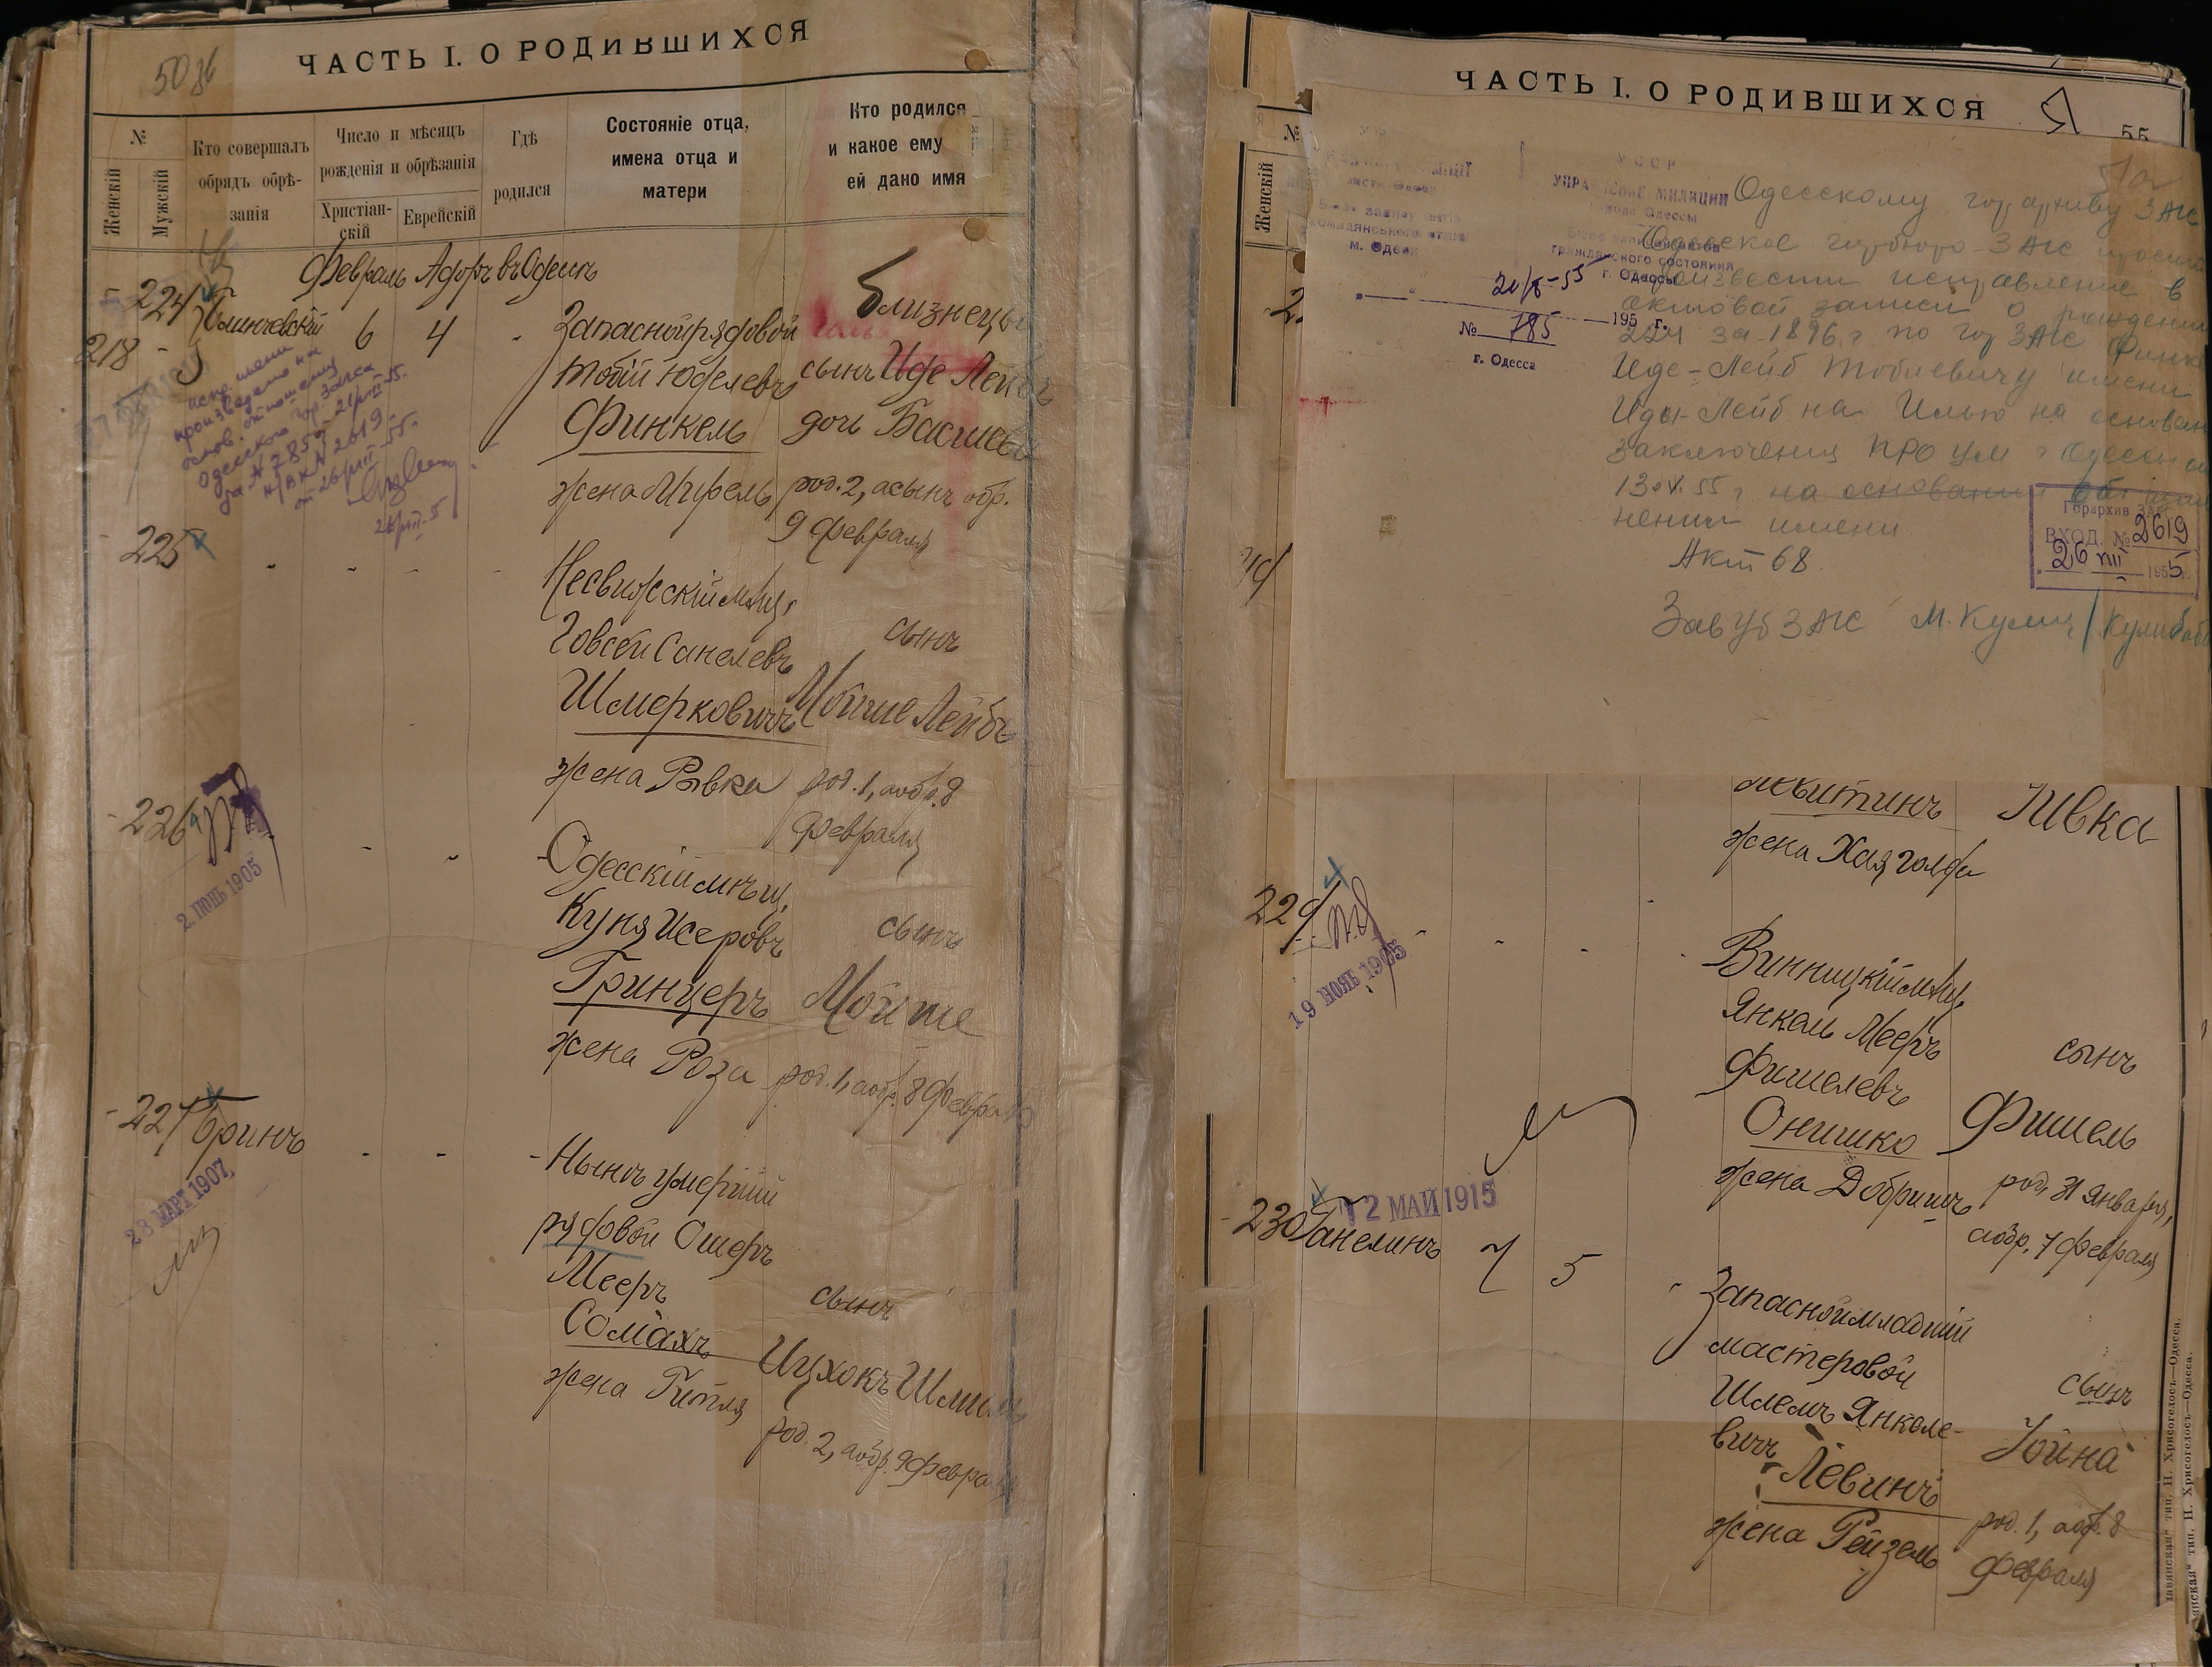 ЧАСТЬ I. О РОДИВШИХСЯ
№
Женскій
Мужскій
Кто совершалъ обрядъ обрѣ-
занія
Число и мѣсяцъ
рожденія и обрѣзанія
Христіан-
скій
Еврейскій
Гдѣ
родился
Состояніе отца,
имена отца и
матери
Кто родился
и какое ему
ей дано имя
Февраль Адаръ въ Одессѣ
224
218
6 4
Запасной рядовой
Тобій Юделевъ
Финкель
жена Ципрель
Близнецы
сынъ Иде Лейбъ
дочь Басшева
род. 2, а сынъ обр.
9 февраля
испр. имени
произведено на
основ. отношения
Одесского гор. Загса
за № 785 от 21/VIII-55.
н/вх № 2619
от 26/VIII-55.
26/VIII-5
225
Несвижскій мѣщ.
Говсей Санелевъ
Шмерковичъ
жена Рывка
сынъ
Мойше Лейбъ
род. 1, а обр. 8
февраля
226
2 ІЮНЬ 1905
Одесскій мѣщ.
Куня Исеровъ
Гринцеръ
жена Роза
сынъ
Мойше
род. 1, а обр. 8 февраля
227 Гринъ
28 МАРТ 1907
Нынѣ умершій
рядовой Ошеръ
Мееръ
Сомахъ
жена Гитля
сынъ
Ицхокъ Шмиль
род. 2, а обр. 9 февраля
ЧАСТЬ I. О РОДИВШИХСЯ
55
№
Женскій
УССР
УПРАВЛЕНИЕ МИЛИЦИИ
города Одессы
Бюро записи актов
гражданского состояния
г. Одессы
м. Одеса
21/8-55
195 г.
№ 785
г. Одесса
Одесскому горархиву ЗАГС
Одесское горбюро ЗАГС просит
произвести исправление в
актовой записи о рождении
224 за 1896 г. по гор ЗАГС Финкель
Иде-Лейб Тобиевичу имени
Иды-Лейб на Илью на основан
заключения ПРО УМ г Одессы от
13.V.55 г на основании об изме
нении имени
Акт 68.
Горархив ЗАГС
ВХОД. № 2619
26 VIII 1955 г.
Зав ГБ ЗАГС
Левитинъ
жена Хая Голда
Ривка
229
19 ІЮНЬ 1905
Винницкій мѣщ.
Янкель Мееръ
Фишелевъ
Онишко
жена Добришъ
сынъ
Фишель
род. 31 января,
а обр. 7 февраля
230 Ганелинъ
12 МАЙ 1915
7 5
Запасной младшій
мастеровой
Шлемъ Янкеле-
вичъ
Левинъ
жена Рейзель
сынъ
Іойна
род. 1, а обр. 8
февраля
тип. И. Хрисогелосъ—Одесса.